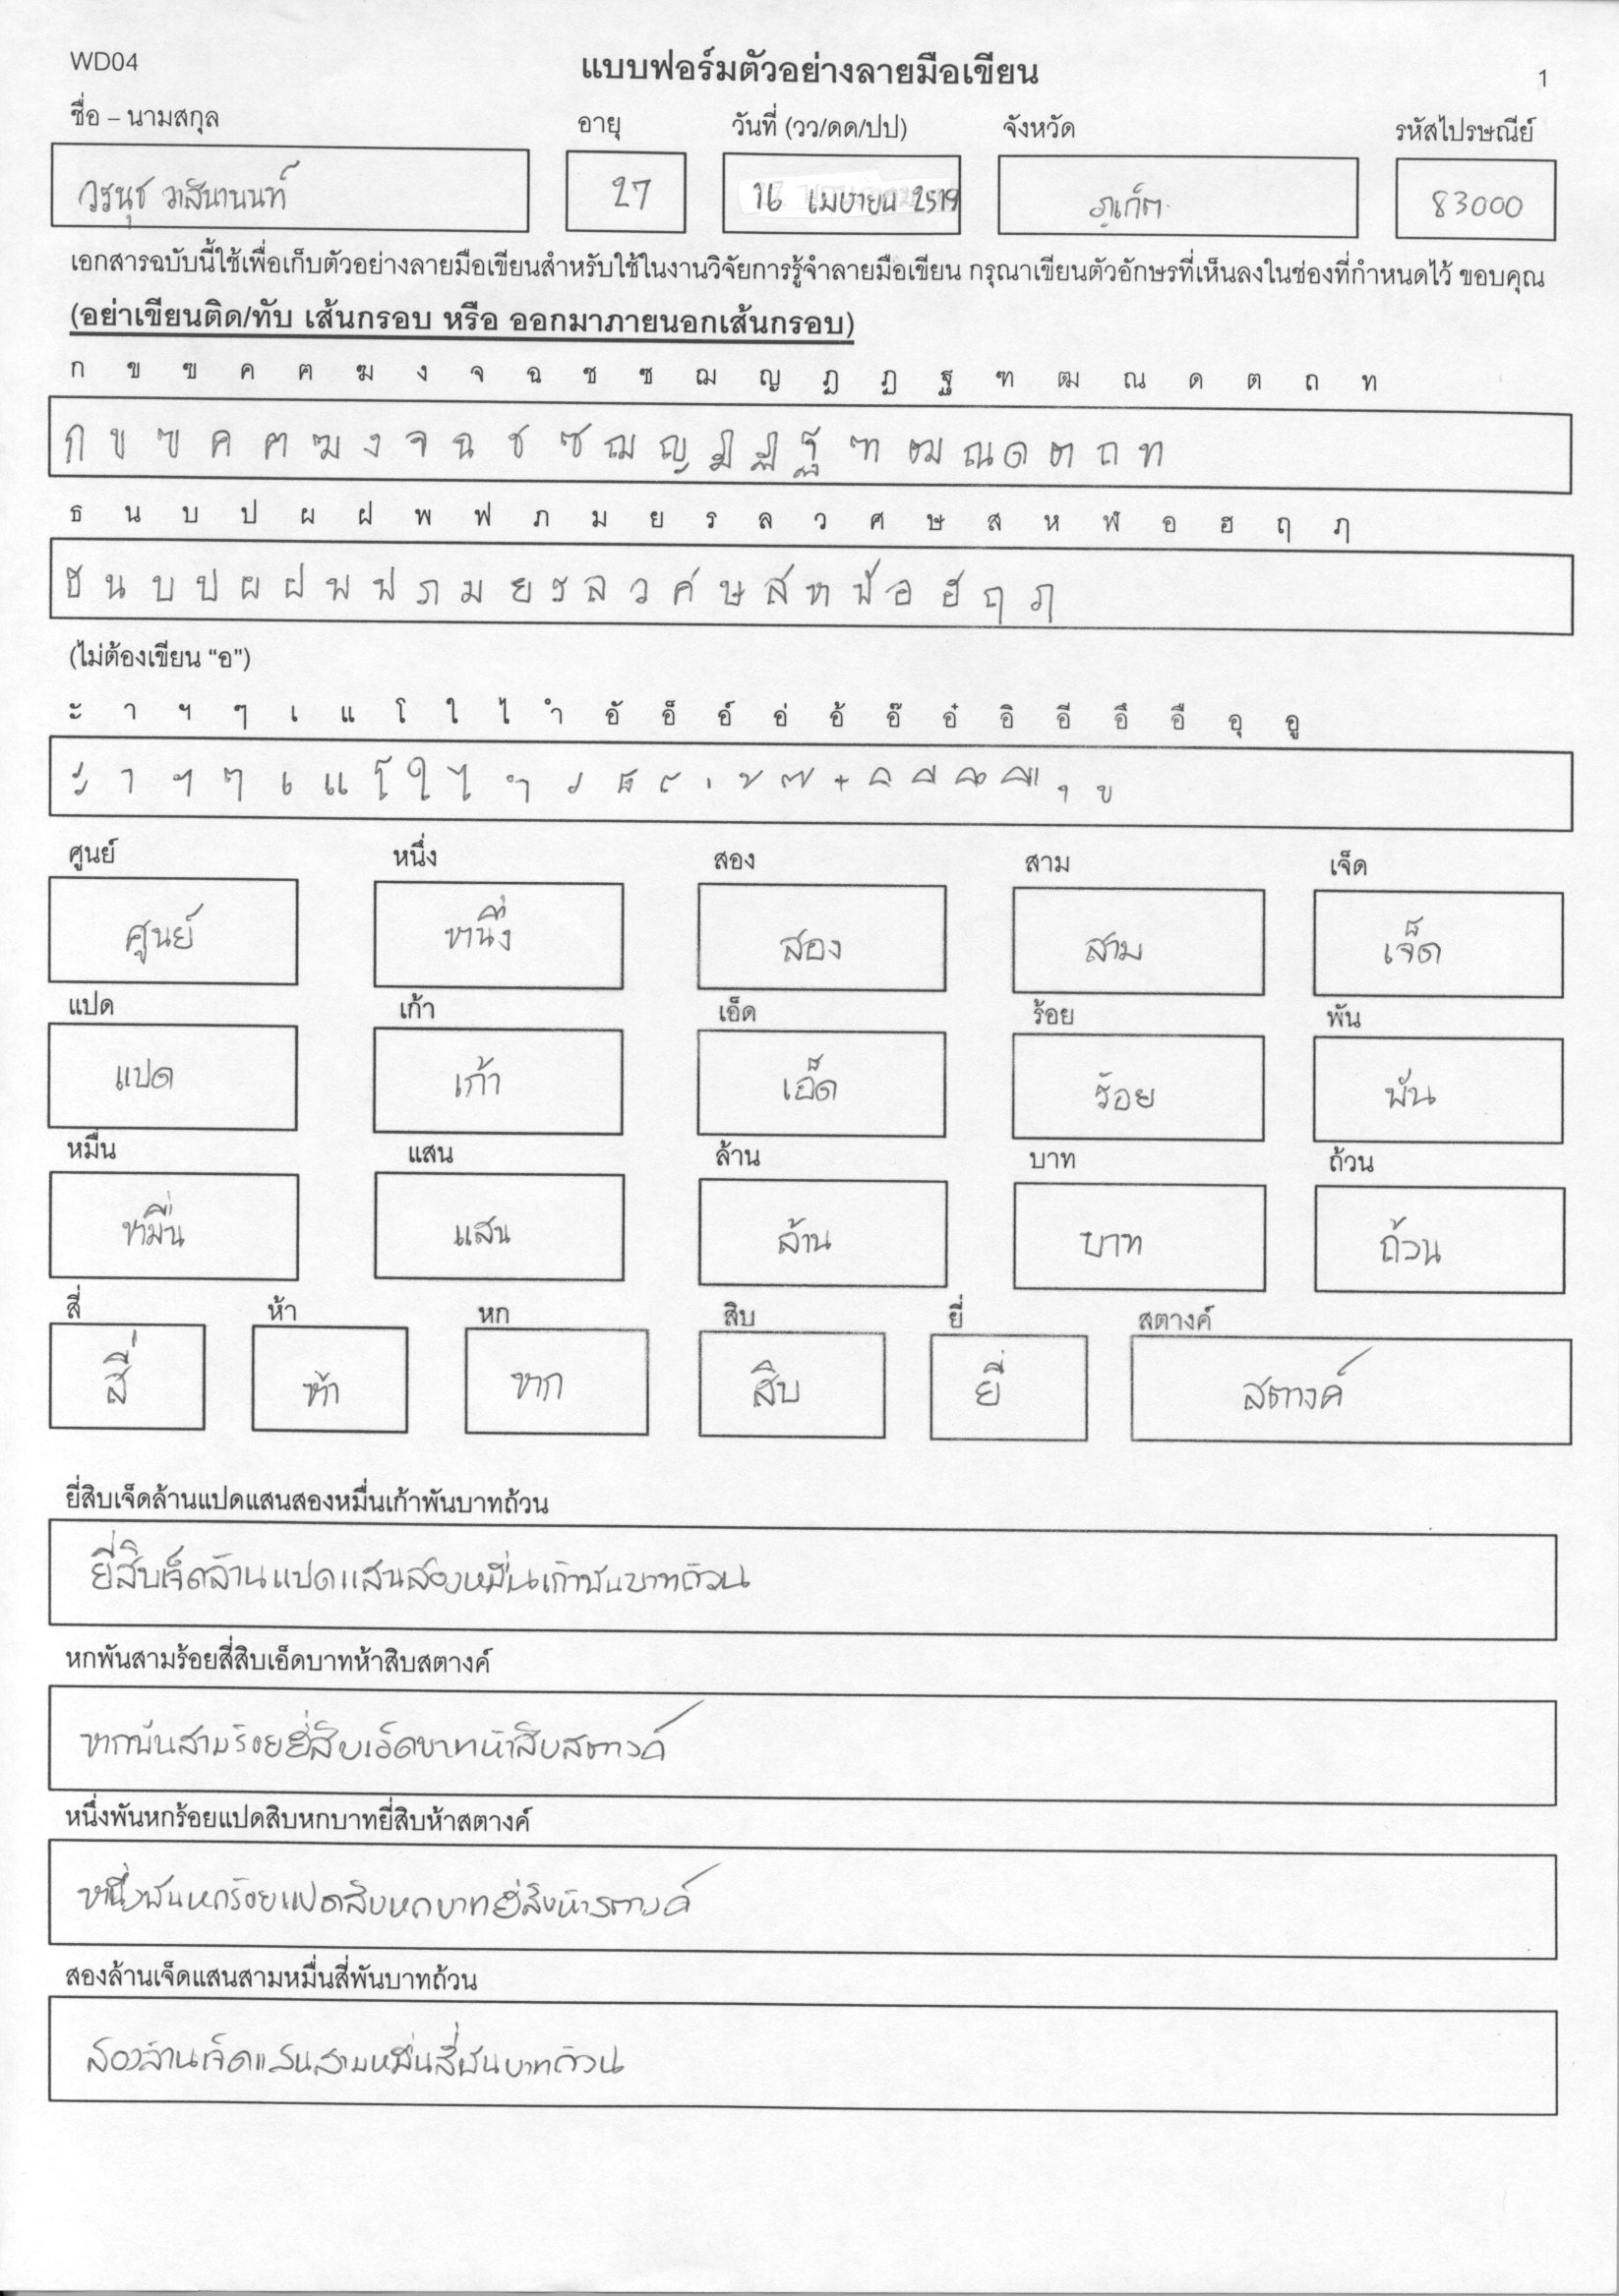 WD04
แบบฟอร์มตัวอย่างลายมือเขียน
1
ชื่อ – นามสกุล อายุ วันที่ (วว/ดด/ปป) จังหวัด รหัสไปรษณีย์
วรนุช วาสินานนท์ 27 16 เมษายน 2519 ภูเก็ต 83000
เอกสารฉบับนี้ใช้เพื่อเก็บตัวอย่างลายมือเขียนสำหรับใช้ในงานวิจัยการรู้จำลายมือเขียน กรุณาเขียนตัวอักษรที่เห็นลงในช่องที่กำหนดไว้ ขอบคุณ
(อย่าเขียนติด/ทับ เส้นกรอบ หรือ ออกมาภายนอกเส้นกรอบ)
ก ข ฃ ค ฅ ฆ ง จ ฉ ช ซ ฌ ญ ฎ ฏ ฐ ฑ ฒ ณ ด ต ถ ท
ก ข ฃ ค ฅ ฆ ง จ ฉ ช ซ ฌ ญ ฎ ฏ ฐ ฑ ฒ ณ ด ต ถ ท
ธ น บ ป ผ ฝ พ ฟ ภ ม ย ร ล ว ศ ษ ส ห ฬ อ ฮ ฤ ฦ
ธ น บ ป ผ ฝ พ ฟ ภ ม ย ร ล ว ศ ษ ส ห ฬ อ ฮ ฤ ฦ
(ไม่ต้องเขียน “อ”)
ะ า ฯ ๆ เ แ โ ใ ไ ำ อั อ็ อ์ อ่ อ้ อ๊ อ๋ อิ อี อึ อื อุ อู
ะ า ฯ ๆ เ แ โ ใ ไ ำ ั ็ ์ ่ ้ ๊ ๋ ิ ี ึ ื ุ ู
ศูนย์ หนึ่ง สอง สาม เจ็ด
ศูนย์ หนึ่ง สอง สาม เจ็ด
แปด เก้า เอ็ด ร้อย พัน
แปด เก้า เอ็ด ร้อย พัน
หมื่น แสน ล้าน บาท ถ้วน
หมื่น แสน ล้าน บาท ถ้วน
สี่ ห้า หก สิบ ยี่ สตางค์
สี่ ห้า หก สิบ ยี่ สตางค์
ยี่สิบเจ็ดล้านแปดแสนสองหมื่นเก้าพันบาทถ้วน
ยี่สิบเจ็ดล้านแปดแสนสองหมื่นเก้าพันบาทถ้วน
หกพันสามร้อยสี่สิบเอ็ดบาทห้าสิบสตางค์
หกพันสามร้อยยี่สิบเอ็ดบาทห้าสิบสตางค์
หนึ่งพันหกร้อยแปดสิบหกบาทยี่สิบห้าสตางค์
หนึ่งพันหกร้อยแปดสิบหกบาทยี่สิบห้าสตางค์
สองล้านเจ็ดแสนสามหมื่นสี่พันบาทถ้วน
สองล้านเจ็ดแสนสามหมื่นสี่พันบาทถ้วน